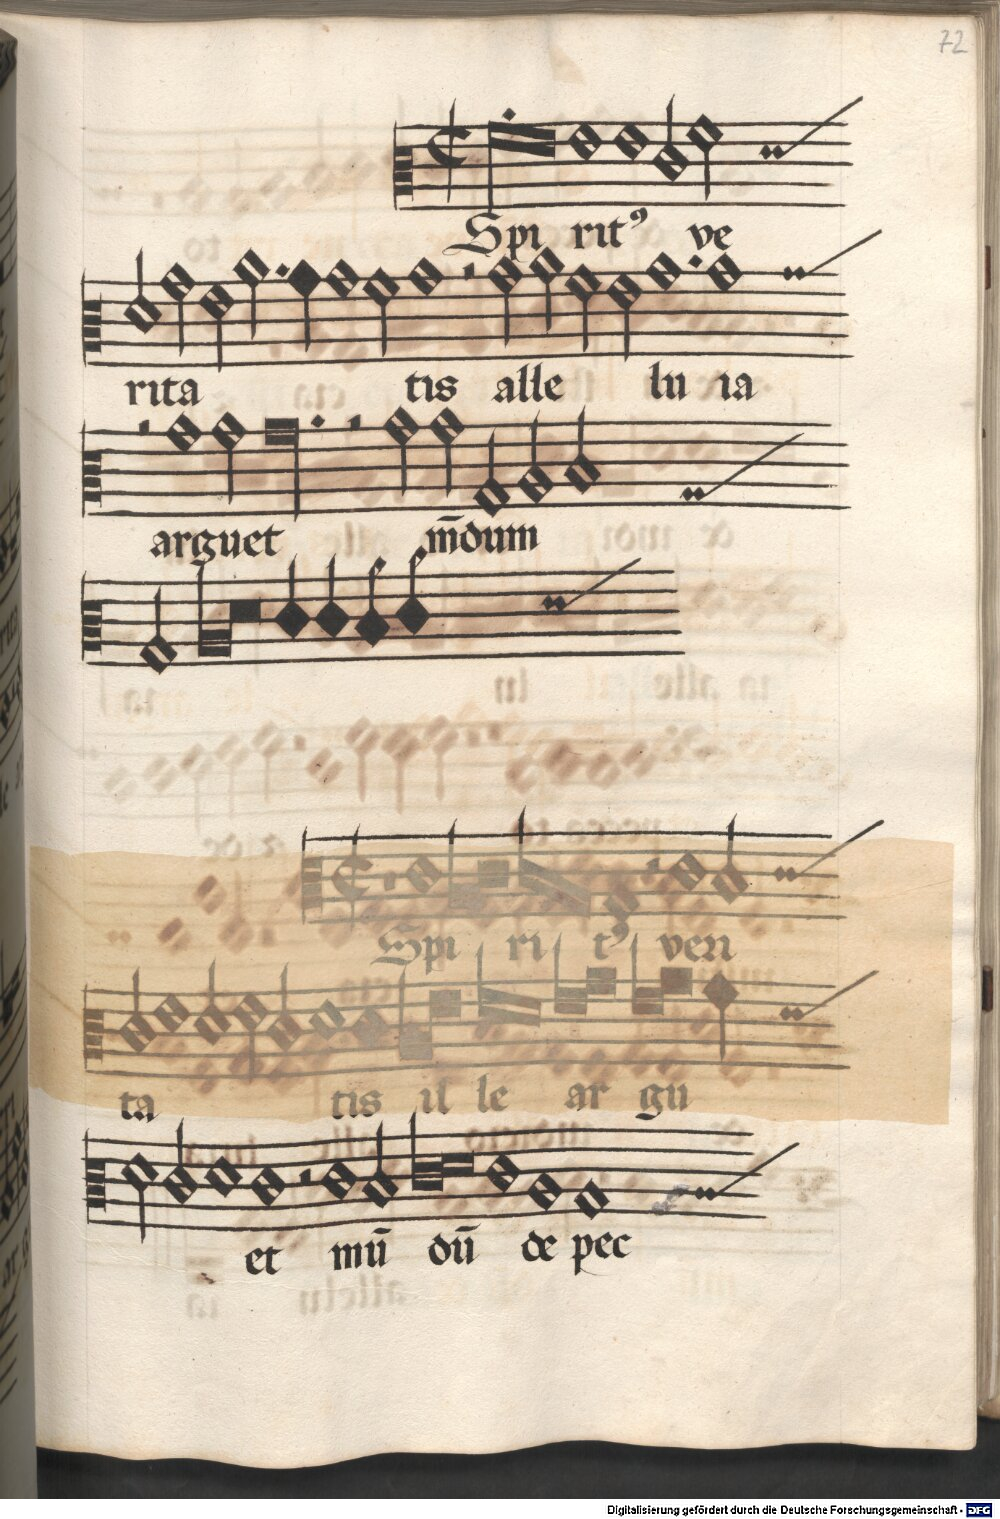 72
Spi ritꝰ ve
rita tis alle lu ia
arguet m̄dum
Spi ri tꝰ veri
ta tis il le ar gu
et mū dū de pec
Digitalisierung gefördert durch die Deutsche Forschungsgemeinschaft - DFG